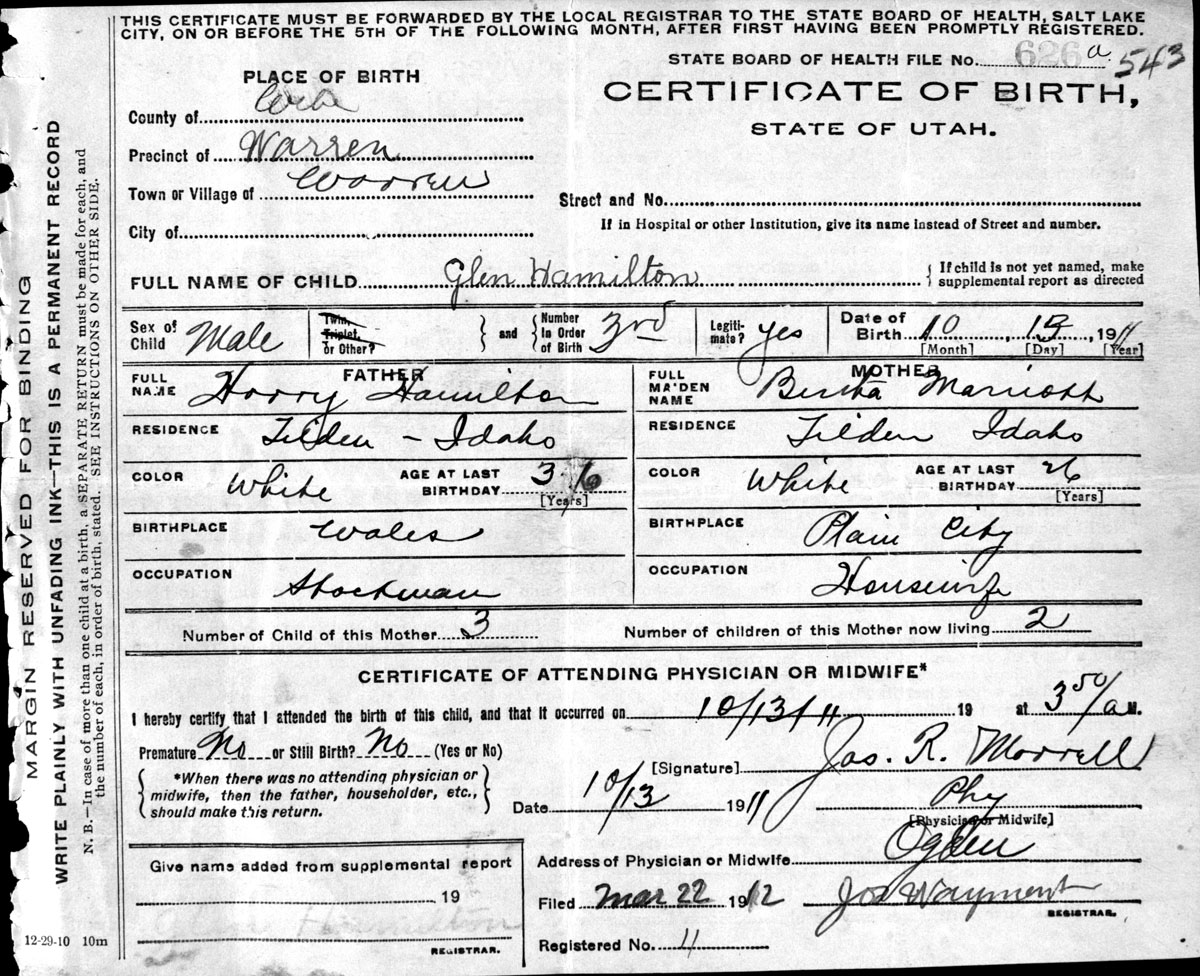 THIS CERTIFICATE MUST BE FORWARDED BY THE LOCAL REGISTRAR TO THE STATE BOARD OF HEALTH, SALT LAKE
CITY, ON OR BEFORE THE 5TH OF THE FOLLOWING MONTH, AFTER FIRST HAVING BEEN PROMPTLY REGISTERED.
STATE BOARD OF HEALTH FILE No. 626 a 543
PLACE OF BIRTH
CERTIFICATE OF BIRTH,
STATE OF UTAH.
County of
Precinct of Warren
Town or Village of Warren
Street and No.
City of
If in Hospital or other Institution, give its name instead of Street and number.
FULL NAME OF CHILD Glen Hamilton { If child is not yet named, make supplemental report as directed
Sex of Child Male
Twin, Triplet, or Other? } and { Number in Order of Birth 3rd
Legitimate? yes
Date of Birth 10, 13, 1911
[Month] [Day] [Year]
FATHER
FULL NAME Harry Hamilton
RESIDENCE Tilden - Idaho
COLOR White AGE AT LAST BIRTHDAY 36 [Years]
BIRTHPLACE Wales
OCCUPATION Stockman
MOTHER
FULL MAIDEN NAME Bertha Marriott
RESIDENCE Tilden Idaho
COLOR White AGE AT LAST BIRTHDAY 26 [Years]
BIRTHPLACE Plain City
OCCUPATION Housewife
Number of Child of this Mother 3 Number of children of this Mother now living 2
CERTIFICATE OF ATTENDING PHYSICIAN OR MIDWIFE*
I hereby certify that I attended the birth of this child, and that it occurred on 10/13/11 19 at 3 50/a M.
Premature No or Still Birth? No (Yes or No)
{ *When there was no attending physician or midwife, then the father, householder, etc., should make this return. }
[Signature] Jas. R. Morrell
Date 10/13 1911 Phy
[Physician or Midwife]
Give name added from supplemental report
19
Glen Hamilton
REGISTRAR.
Address of Physician or Midwife Ogden
Filed Mar 22 1912 Jos Wayment
REGISTRAR.
Registered No. 11
12-29-10 10m
MARGIN RESERVED FOR BINDING
WRITE PLAINLY WITH UNFADING INK—THIS IS A PERMANENT RECORD
N. B.—In case of more than one child at a birth, a SEPARATE RETURN must be made for each, and
the number of each, in order of birth, stated. SEE INSTRUCTIONS ON OTHER SIDE.